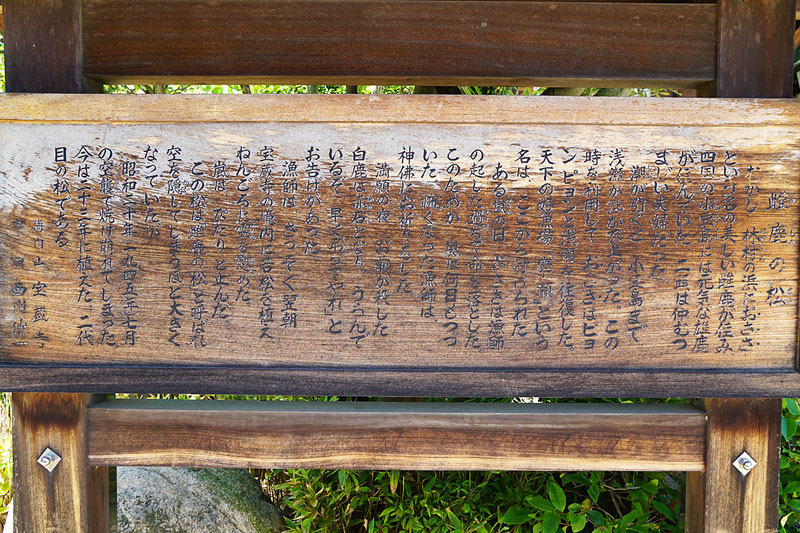 雌鹿の松
むかし 林村の浜におささ
という名の美しい雌鹿が住み
四国の小豆島には元気な雄鹿
がすんでいた。二匹は仲むつ
まじい夫婦だった。
潮が引くと 小豆島まで
浅瀬が 上がった。この
時を利用して おささはピヨ
ンピヨンと浅瀬を往復した。
天下の 場 という
名は、ここから名づけられた。
ある 日 おささは漁師
の 命を落とした。
このためか 嵐は何日もつづ
いた。怖くなった漁師は
神佛にお祈りをした。
満願の夜、お前が殺した
白鹿は赤石となり うらんで
いるぞ、早く とやれ」と
お告げがあった。
漁師は、さっそく翌朝
宝蔵寺の境内に若松を植え
ねんごろに霊を慰めた。
嵐は、ぴたりと止んだ。
この松は雌鹿の松と呼ばれ
空を隠してしまうほど大きく
なっていたが
昭和二十年（一九四五）七月
の空襲で焼け崩れてしまった。
今は二十三年に植えた、二代
目の松である。
海内山 宝蔵寺
西川